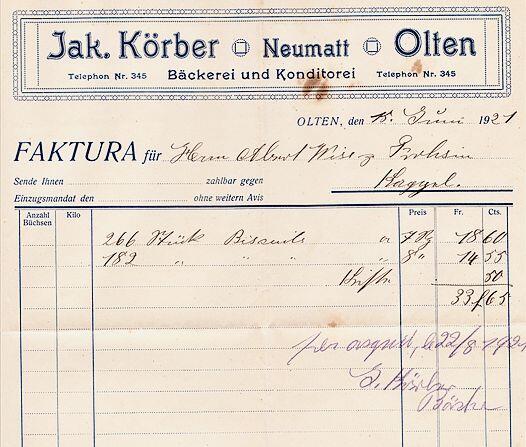 Jak. Körber Neumatt Olten
Telephon Nr. 345 Bäckerei und Konditorei Telephon Nr. 345
OLTEN, den 15. Juni 1921
FAKTURA für Herrn Albert Wiss z.
Sende Ihnen zahlbar gegen
Einzugsmandat den ohne weitern Avis
Anzahl Büchsen Kilo Preis Fr. Cts.
266 Stück Biscuits a 7 Rp 18 60
182 " " " a 8 " 14 55
50
33 65
22/8 1921